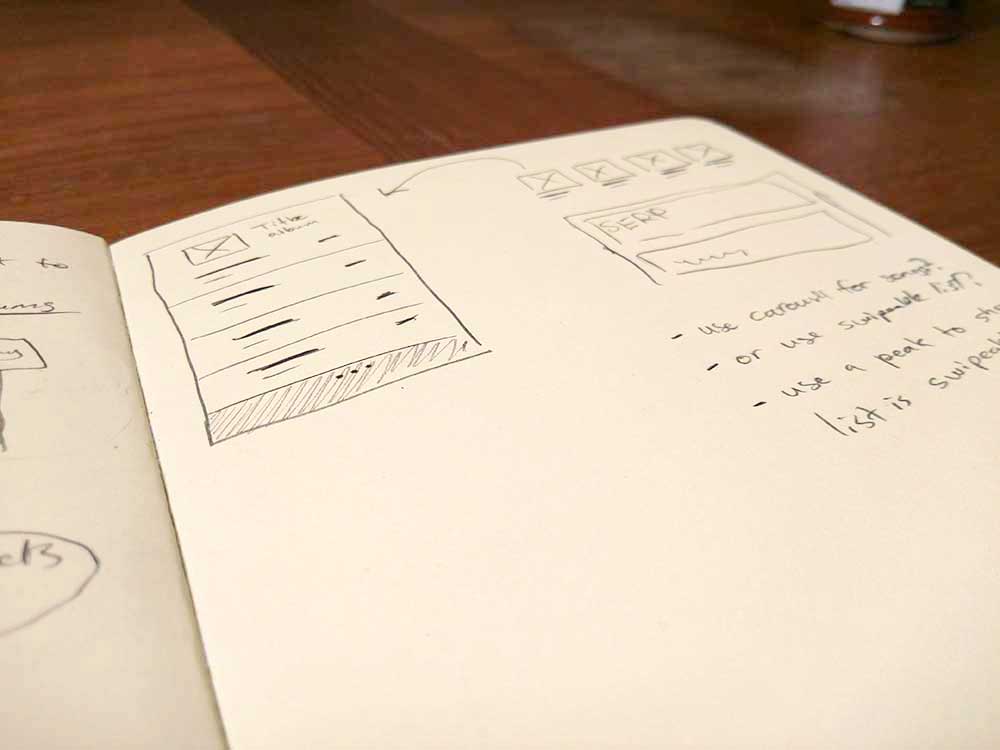 to
Title
album
SERP
- use carousel for songs?
- or use swipeable list?
- use a peak to
list is